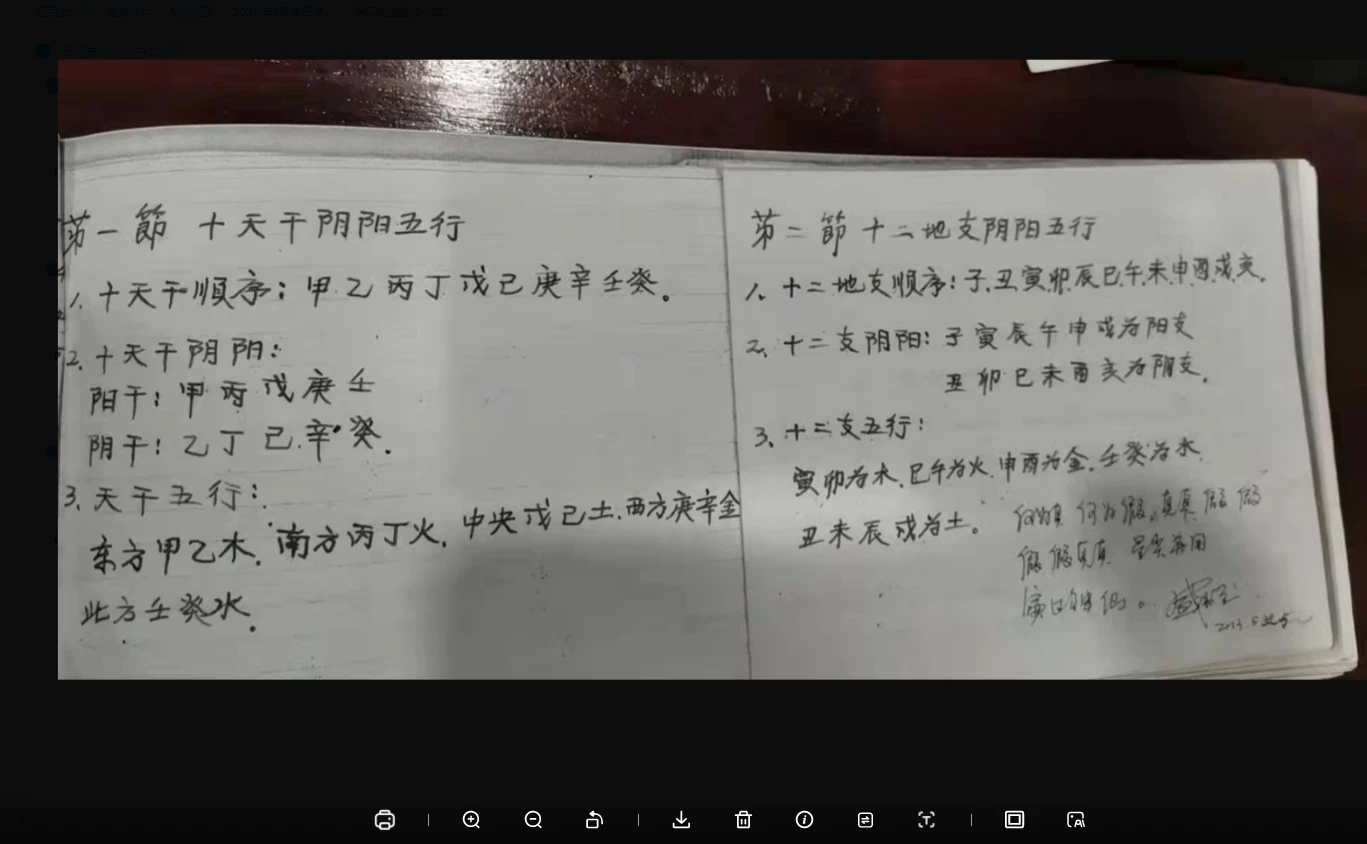 第一節 十天干阴阳五行
1、十天干順序：甲乙丙丁戊己庚辛壬癸。
2、十天干阴阳：
阳干：甲丙戊庚壬
阴干：乙丁己.辛癸.
3、天干五行：
东方甲乙木. 南方丙丁火. 中央戊己土.西方庚辛金
北方壬癸水.
第二節 十二地支阴阳五行
1、十二地支顺序：子.丑.寅.卯.辰.巳.午.未.申.酉.戌.亥.
2、十二支阴阳：子寅辰午申戌为阳支
丑卯巳未酉亥为阴支.
3、十二支五行：
寅卯为木.巳午为火.申酉为金.壬癸为水
丑未辰戌为土。
何为真 何为假.真真假假
假假真真